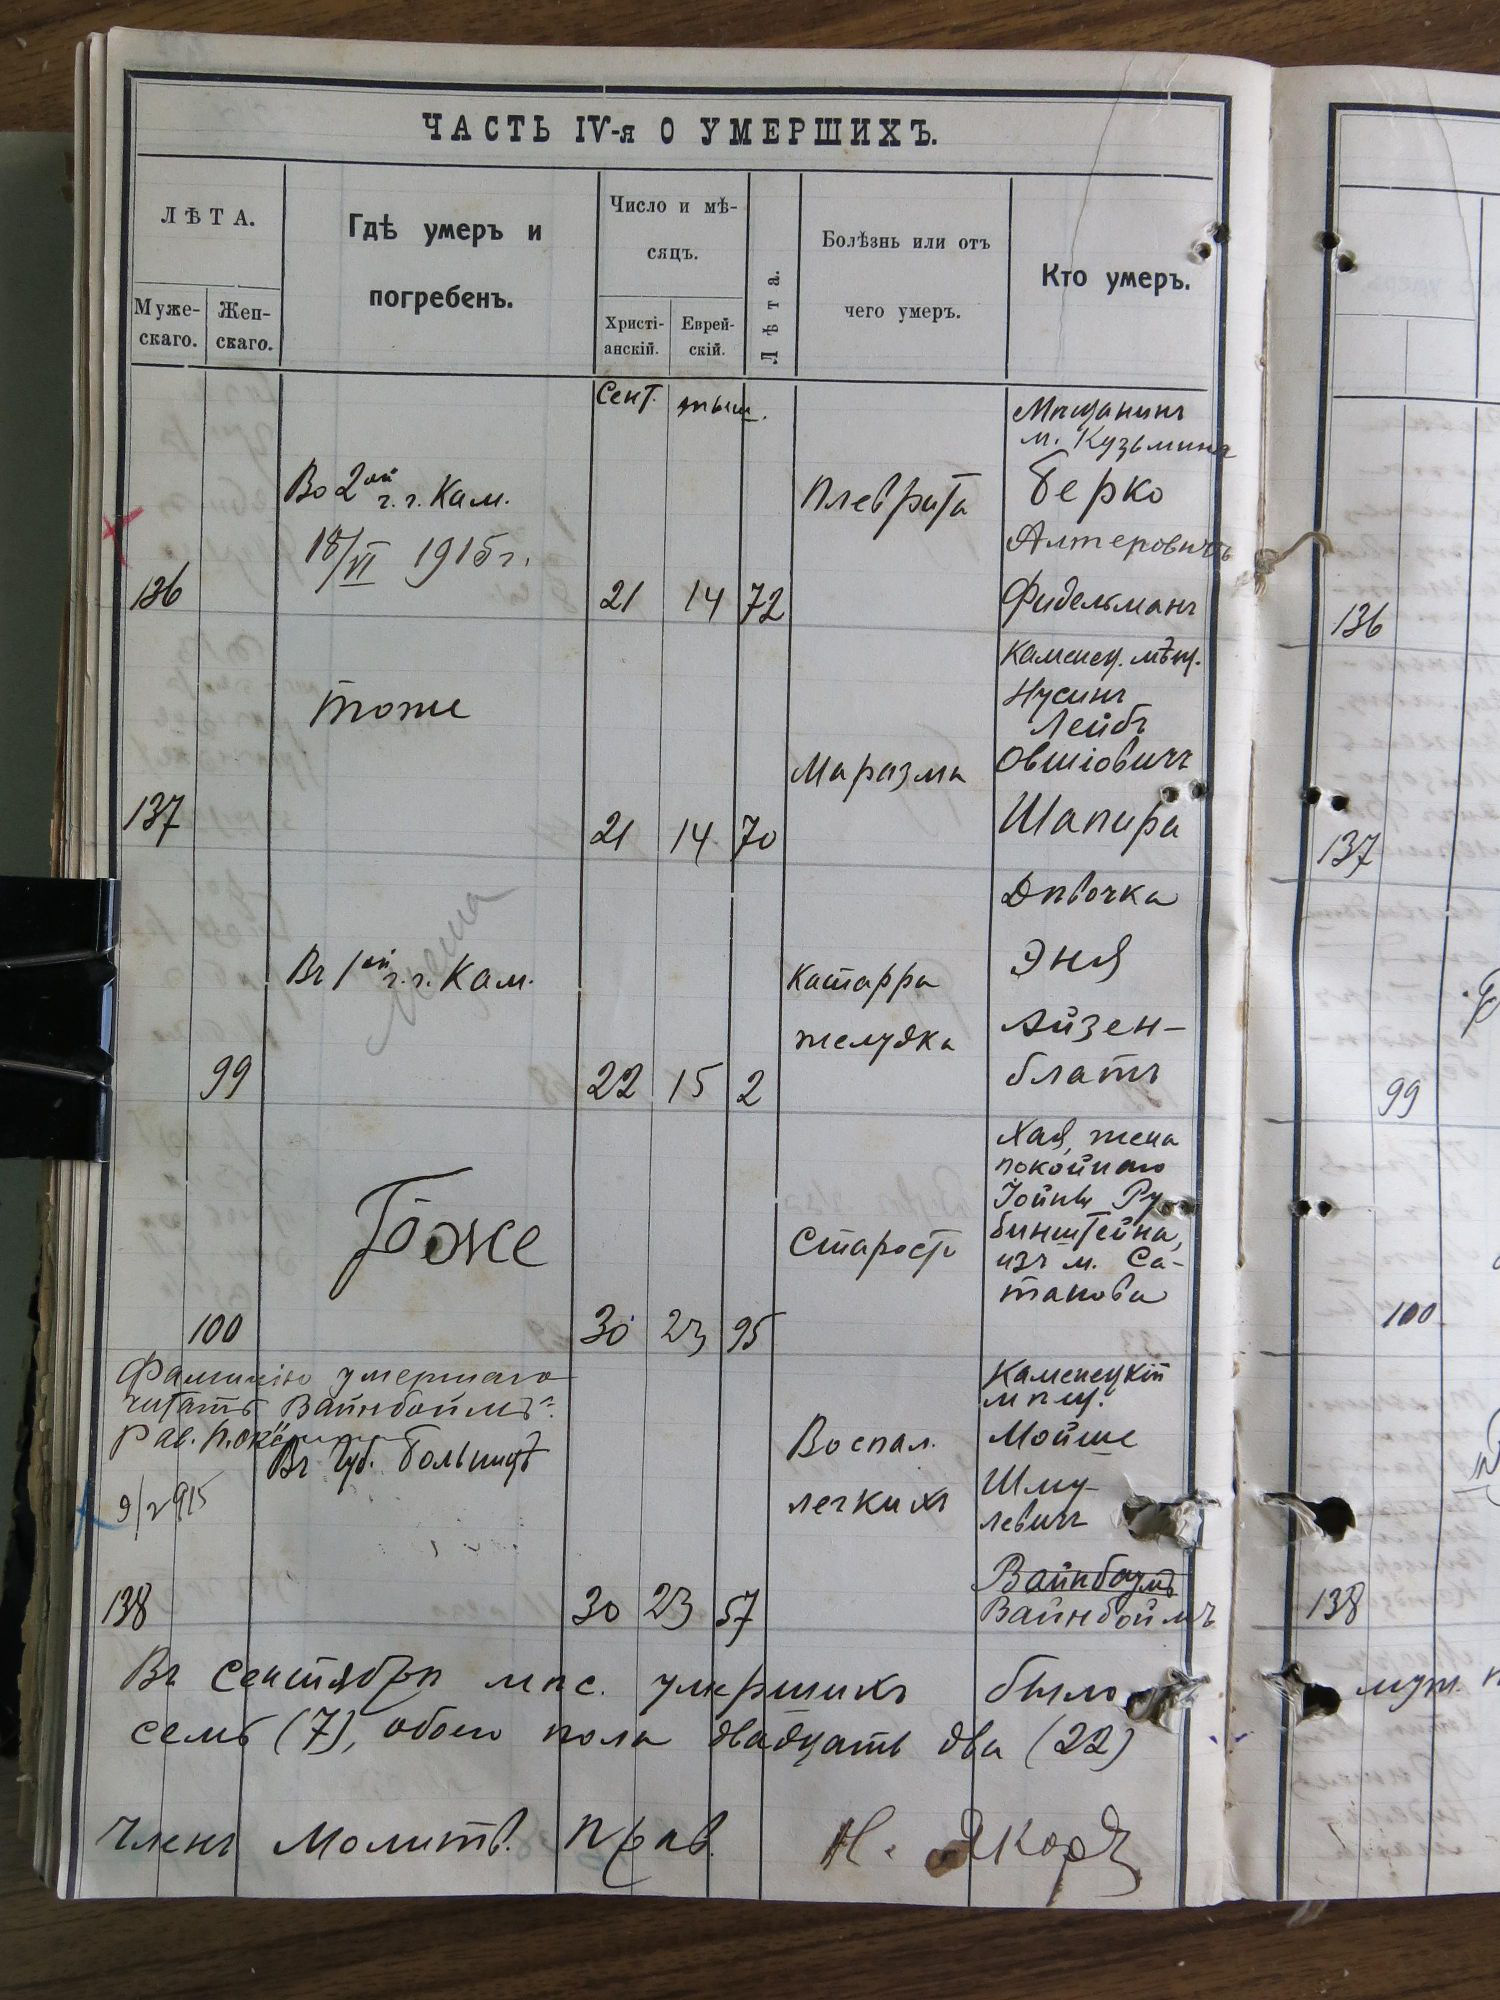 ЧАСТЬ IV-я О УМЕРШИХЪ.
ЛѢТА.
Муже-
скаго.
Жен-
скаго.
Гдѣ умеръ и
погребенъ.
Число и мѣ-
сяцъ.
Христі-
анскій.
Еврей-
скій.
Лѣта.
Болѣзнь или отъ
чего умеръ.
Кто умеръ.
Сент. тыш.
Мѣщанинъ
м. Кузьмина
Во 2ой г. г. Кам.
Плеврита
Берко
18/VI 1915 г.
Алтеровичъ
136 21 14 72
Фидельманъ
Каменец. мѣщ.
Нусинъ
Лейбъ
тоже
Маразма
Овшіовичъ
137 21 14 70
Шапира
Дѣвочка
Въ 1ой г. г. Кам.
Катарра
Эня
желудка
Айзен-
99 22 15 2
блатъ
Хая, жена
покойнаго
Іойны Ру
Тоже
Старость
бинштейна,
изъ м. Са-
танова
100 30 23 95
Фамилію умершаго
читать Вайнбоймъ".
Рав.
Въ Губ. больницѣ
9/2 915
Каменецкій
мѣщ.
Воспал.
Мойше
легкихъ
Шму-
левичъ
Вайнбаумъ
138 30 23 57
Вайнбоймъ
Въ Сентябрѣ мѣс. умершихъ было
семь (7), обоего пола двадцать два (22)
Членъ Молитв. Прав. Н. Якоръ
136
137
99
100
138
муж.